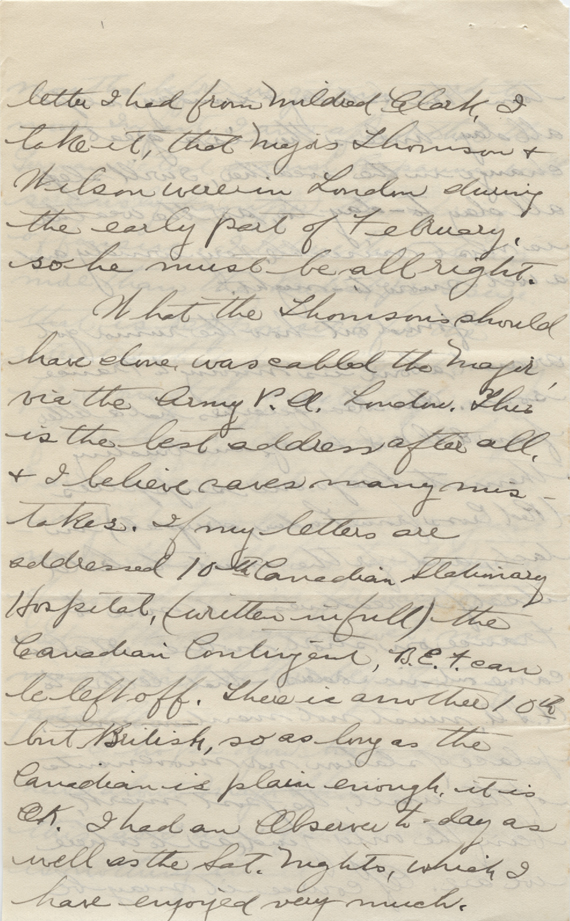 letter I had from Mildred Clark, I
take it, that Majors Thomson +
Wilson were in London during
the early part of February,
so he must be all right.
What the Thomsons should
have done, was cabled the Major
via the Army P.O. London. This
is the best address after all,
+ I believe saves many mis-
takes. If my letters are
addressed 10th Canadian Stationary
Hospital, (written in full) the
Canadian Contingent, B.E.F. can
be left off. There is another 10th
but British, so as long as the
Canadian is plain enough, it is
OK. I had an Observer to-day as
well as the Sat. Nights, which I
have enjoyed very much.